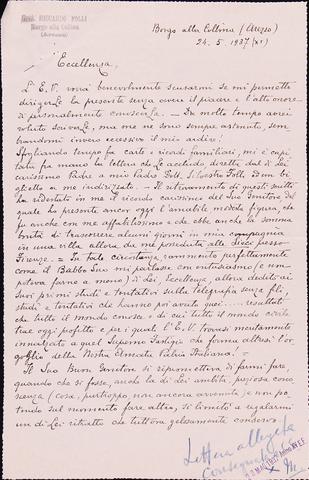 RICCARDO FOLLI
Borgo alla Collina
(Arezzo)
Borgo alla Collina (Arezzo)
24. 5. 1937 (XV)
Eccellenza,
L'E.V. vorrà benevolmente scusarmi se mi permetto
dirigerLe la presente senza avere il piacere e l'alto onore
di personalmente conoscerLa. - Da molto tempo avrei
voluto scriverLe, ma me ne sono sempre astenuto, sem-
brandomi invero eccessivo il mio ardire!
Sfogliando tempo fa carte e ricordi familiari, mi è capi-
tata fra mano la lettera che Le accludo, diretta dal di Lei
carissimo Padre a mio Padre Dott. Silvestro Folli, ed un bi-
glietto a me indirizzato. - Il ritrovamento di questi scritti
ha ridestato in me il ricordo carissimo del Suo Genitore del
quale ho presente ancor oggi l'amabile modesta figura, che
fu anche con me affabilissimo e che ebbe anche la somma
bontà di trascorrere alcuni giorni in mia compagnia
in una villa allora da me posseduta alle presso
Firenze. - In tale circostanza, rammento perfettamente
come il Babbo Suo mi parlasse con entusiasmo (e non
poteva farne a meno) di Lei, Eccellenza, allora dedito ai
Suoi primi studi e tentativi sulla telegrafia senza fili
studi e tentativi che hanno poi avuto quei .... resultati
che tutto il mondo conosce e di cui tutto il mondo civile
trae oggi profitto e per i quali l'E.V. trovasi meritamente
innalzato a quel Supremo fastigio che forma altresì l'or-
goglio della Nostra Amata Patria Italiana! -
Il Suo Buon Genitore si riprometteva di farmi fare,
quando che si fosse, anche la di Lei ambita, preziosa cono-
scenza (cosa, purtroppo, non ancora avvenuta) e non po-
tendo sul momento fare altro, si limitò a regalarmi
un di Lei ritratto che tutt'ora gelosamente conservo.
Lettera allegata
consegnata a